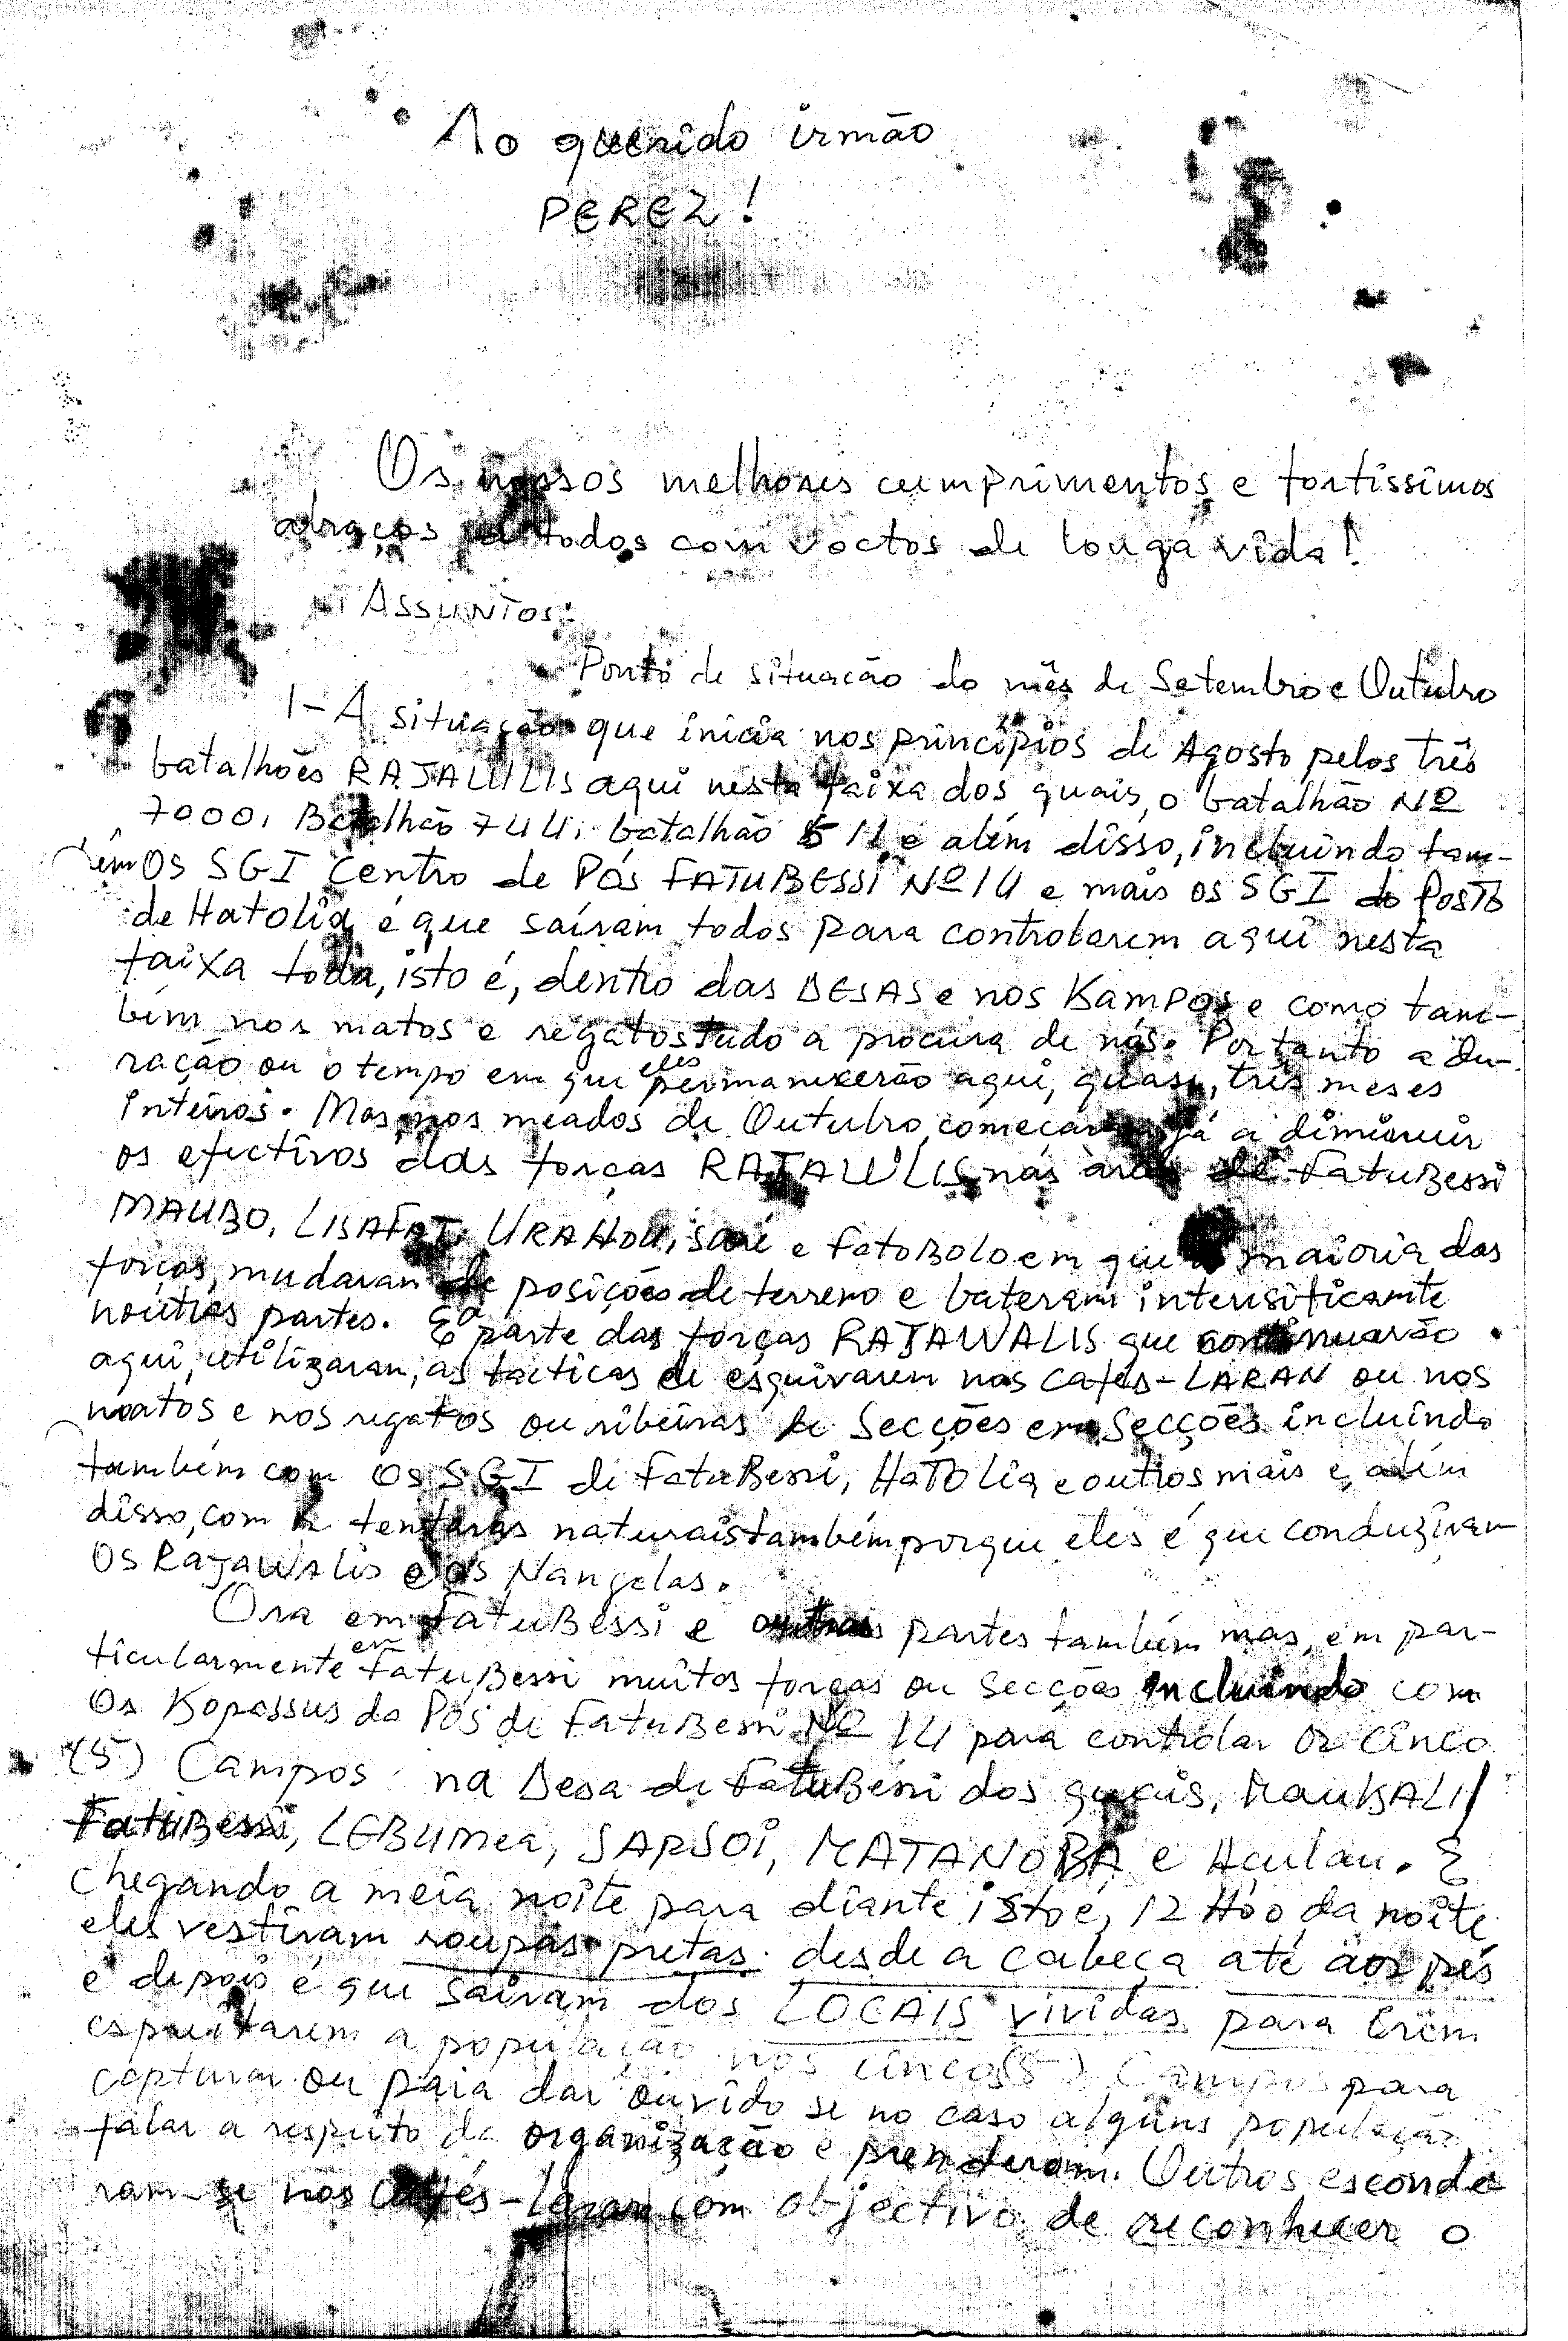 Ao querido irmão
PEREZ!
Os nossos melhores cumprimentos e fortissimos
abraços a todos com voctos de longa vida!
ASSUNTOS:
Ponto de situação do mês de Setembro e Outubro
1-A situação que inicia nos princípios de Agosto pelos três
batalhões RAJAWLIS aqui nesta faixa dos quais, o batalhão Nº
7000, Batalhão 744, batalhão 511 e além disso, incluindo tam-
bém OS SGI Centro de Pós FATUBESSI Nº 14 e mais os SGI do POSTO
de Hatolia é que saíram todos para controlarem aqui nesta
faixa toda, isto é, dentro das DESAS e nos KAMPOS e como tam-
bém nos matos e regatos tudo a procura de nós. Portanto a du-
ração ou o tempo em que eles permanecerão aqui, quase, três meses
inteiros. Mas, nos meados de Outubro, já a diminuir
os efectivos das forças RAJAWLIS nas de FatuBessi
MAUBO, LISAFAT, URAHOU, Saré e FatoBolo em que a maioria das
forças, mudaram de posições de terreno e bateram intensificante
noutras partes. E a parte das forças RAJAWALIS que continuarão
aqui, utilizaram, as tacticas de esquivarem nos cafés-LARAN ou nos
matos e nos regatos ou ribeiras de Secções em Secções incluindo
também com OS SGI de FatuBessi, HaTOLia e outros mais e, além
disso, com naturais também porque eles é que conduziram
OS RAJAWALIS e os Nangelas.
Ora em FatuBessi e outras partes também mas, em par-
ticularmente em FatuBessi muitas forças ou Secções incluindo com
Os Kopassus do Pós de FatuBessi Nº 14 para controlar os cinco
(5) Campos na Desa de FatuBessi dos quais, MauBALI/
FatuBessi, LEBUMEA, SAPSOI, MATANOBA e Haulau. E
chegando a meia noite para diante isto é, 12 H00 da noite
eles vestiram roupas pretas desde a cabeça até aos pés
e depois é que saíram dos LOCAIS vividas para irem
espreitarem a população nos cinco (5) Campos para
capturar ou para dar ouvido se no caso alguns população
falar a respeito da organização e prenderam. Outros esconde
ram-se nos Cafés-laran com objectivo de reconhecer o